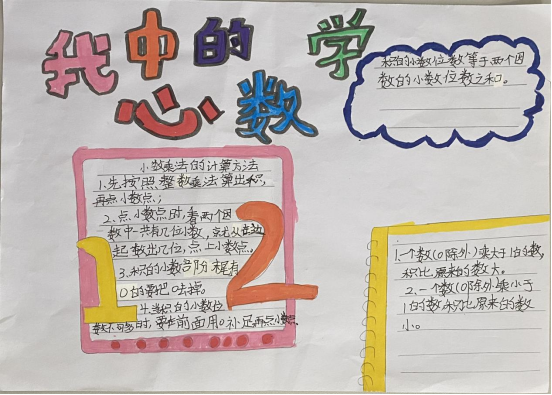 我中的学
心数
积的小数位数等于两个因
数的小数位数之和。
小数乘法的计算方法
1.先按照整数乘法算出积,
再点小数点;
2.点小数点时,看两个因
数中一共有几位小数,就从右边
起数出几位,点上小数点。
3.积的小数部分末尾有
0的要把0去掉。
4.当积的小数位
数不够时,要在前面用0补足再点小数点。
12
1.一个数(0除外)乘大于1的数,
积比原来的数大。
2.一个数(0除外)乘小于
1的数积比原来的数
小。